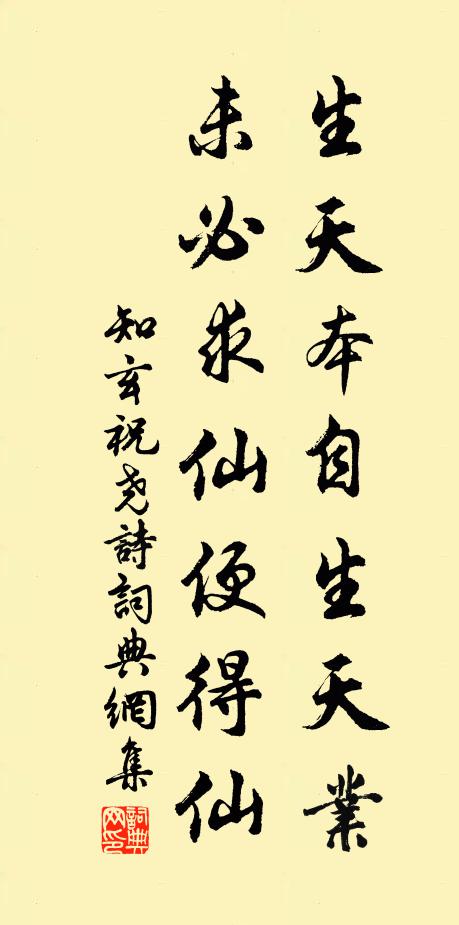 生天本自生天業
未必求仙便得仙
知玄祝堯詩詞典網集
詞典网印